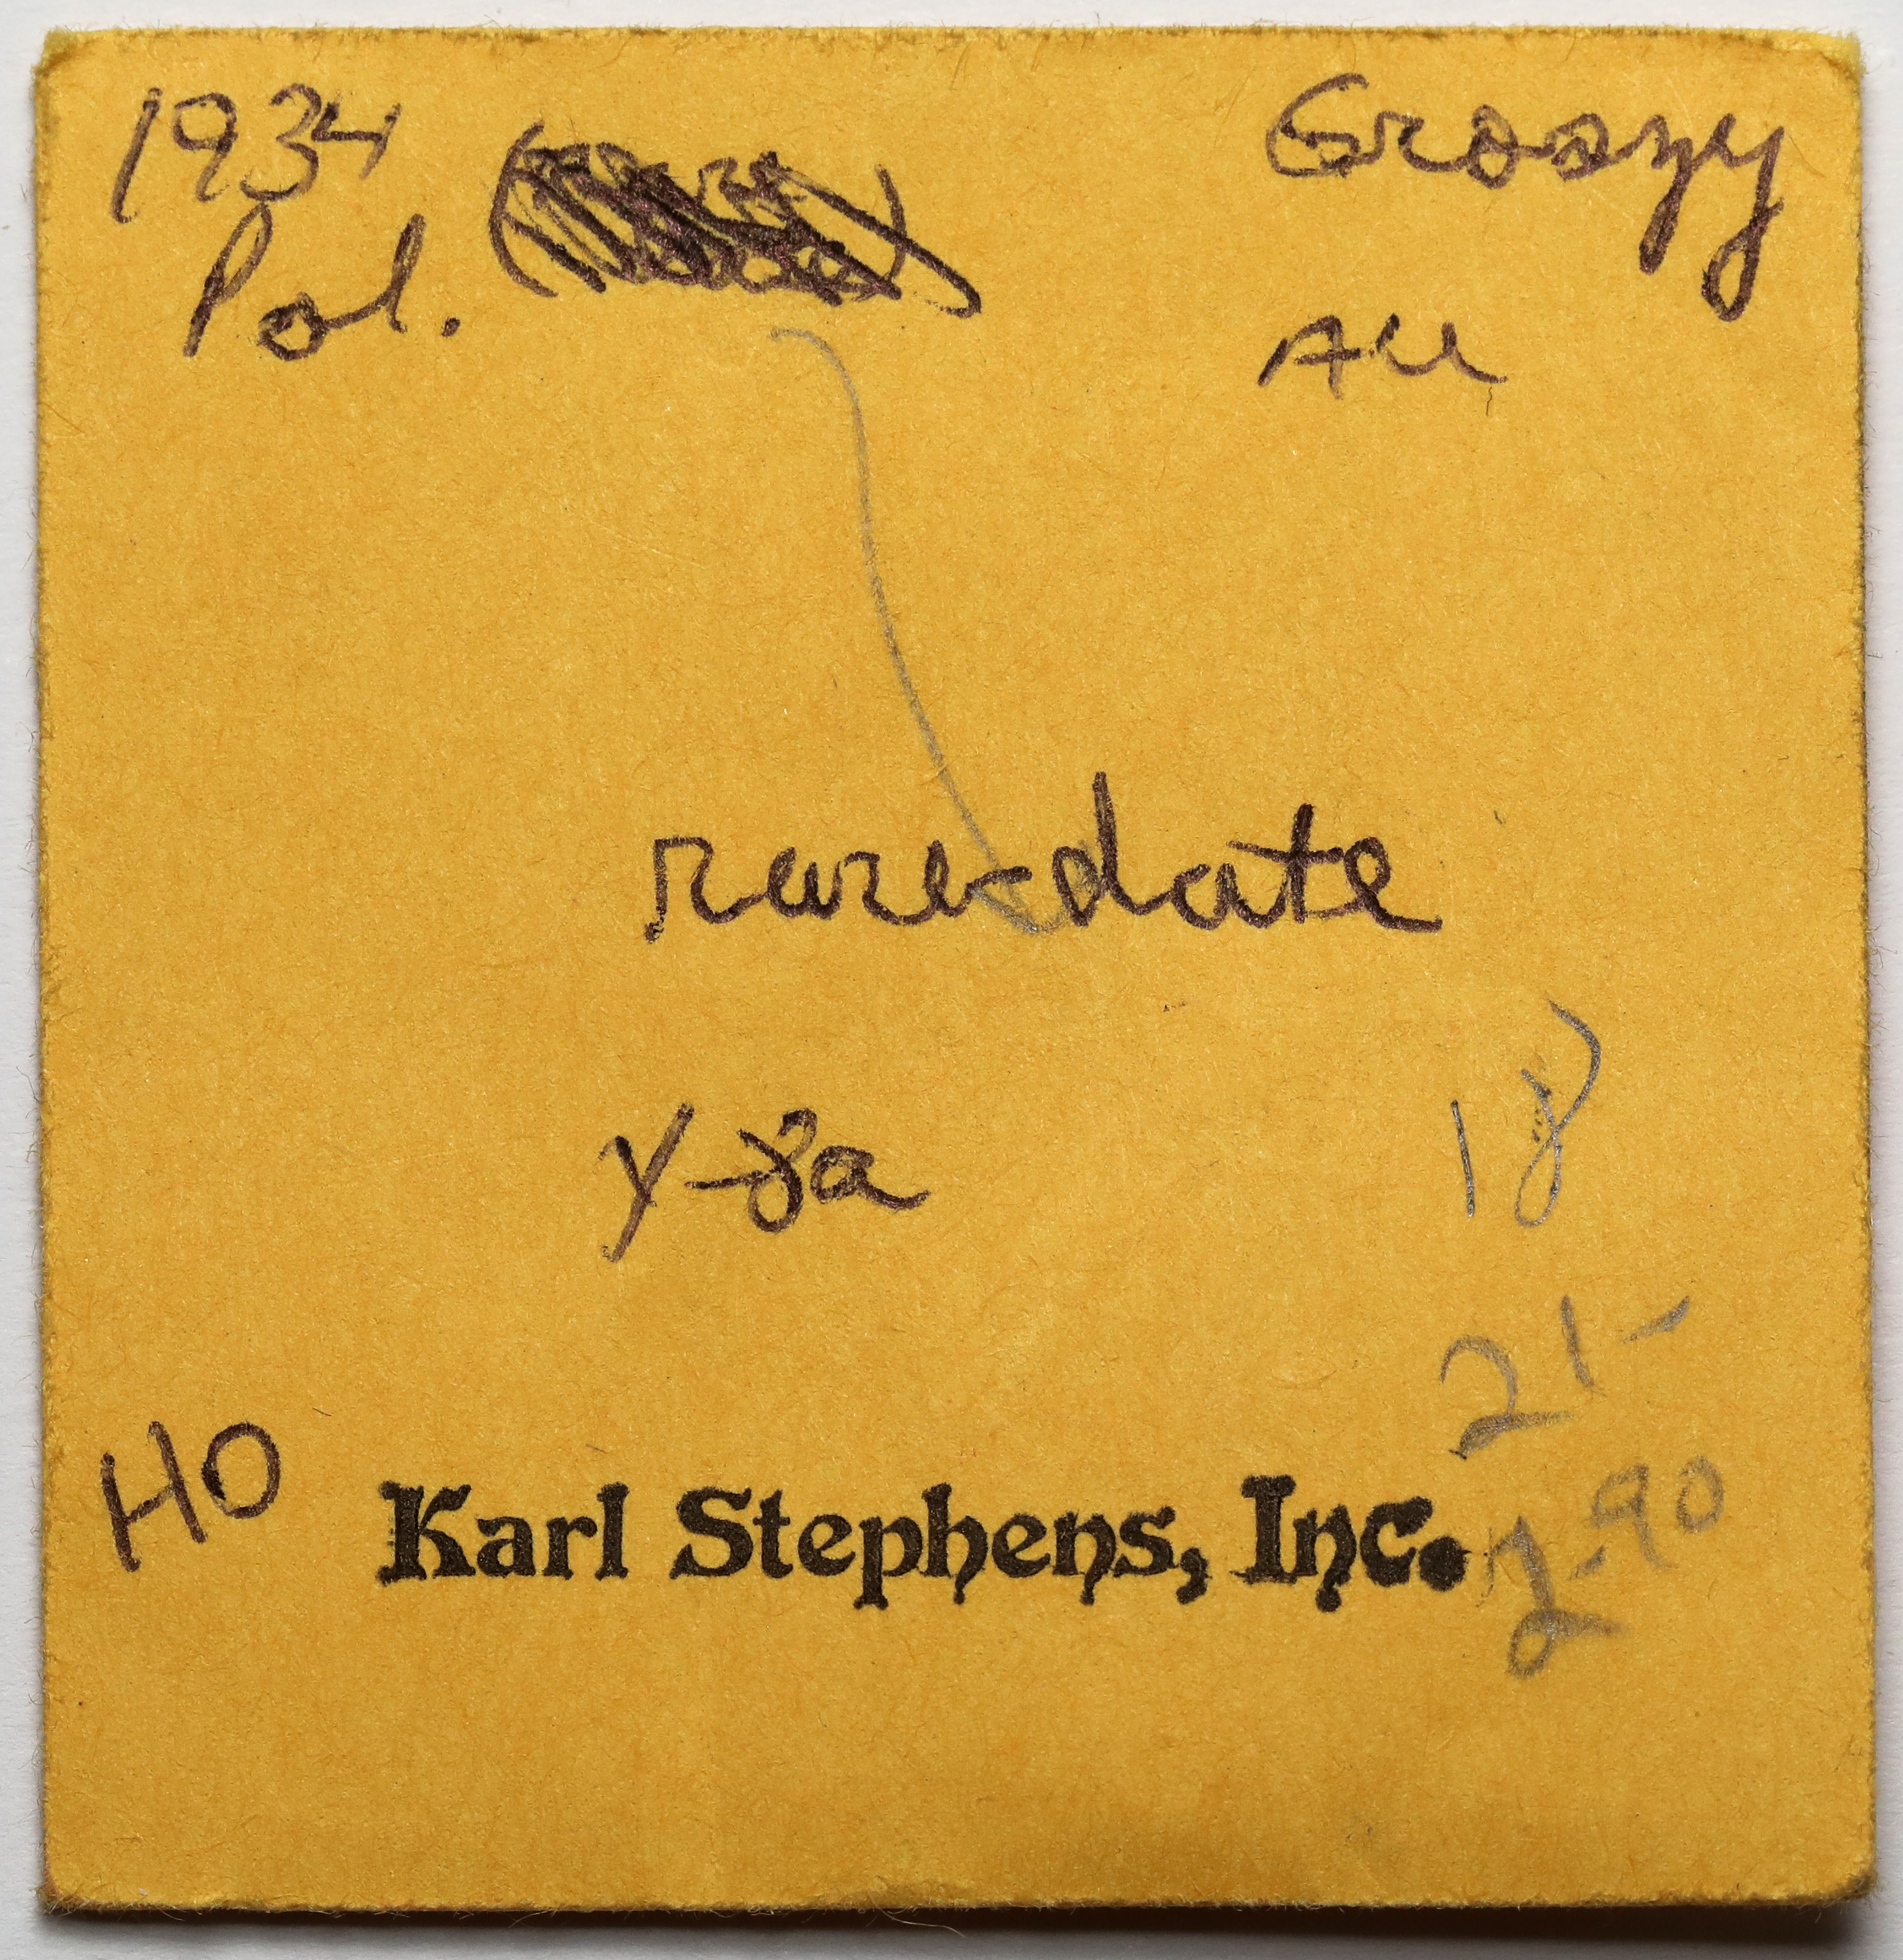 1934 Groszy
Pol. AU
rare date
Y-8a
18
21-
HO Karl Stephens, Inc. 2-90